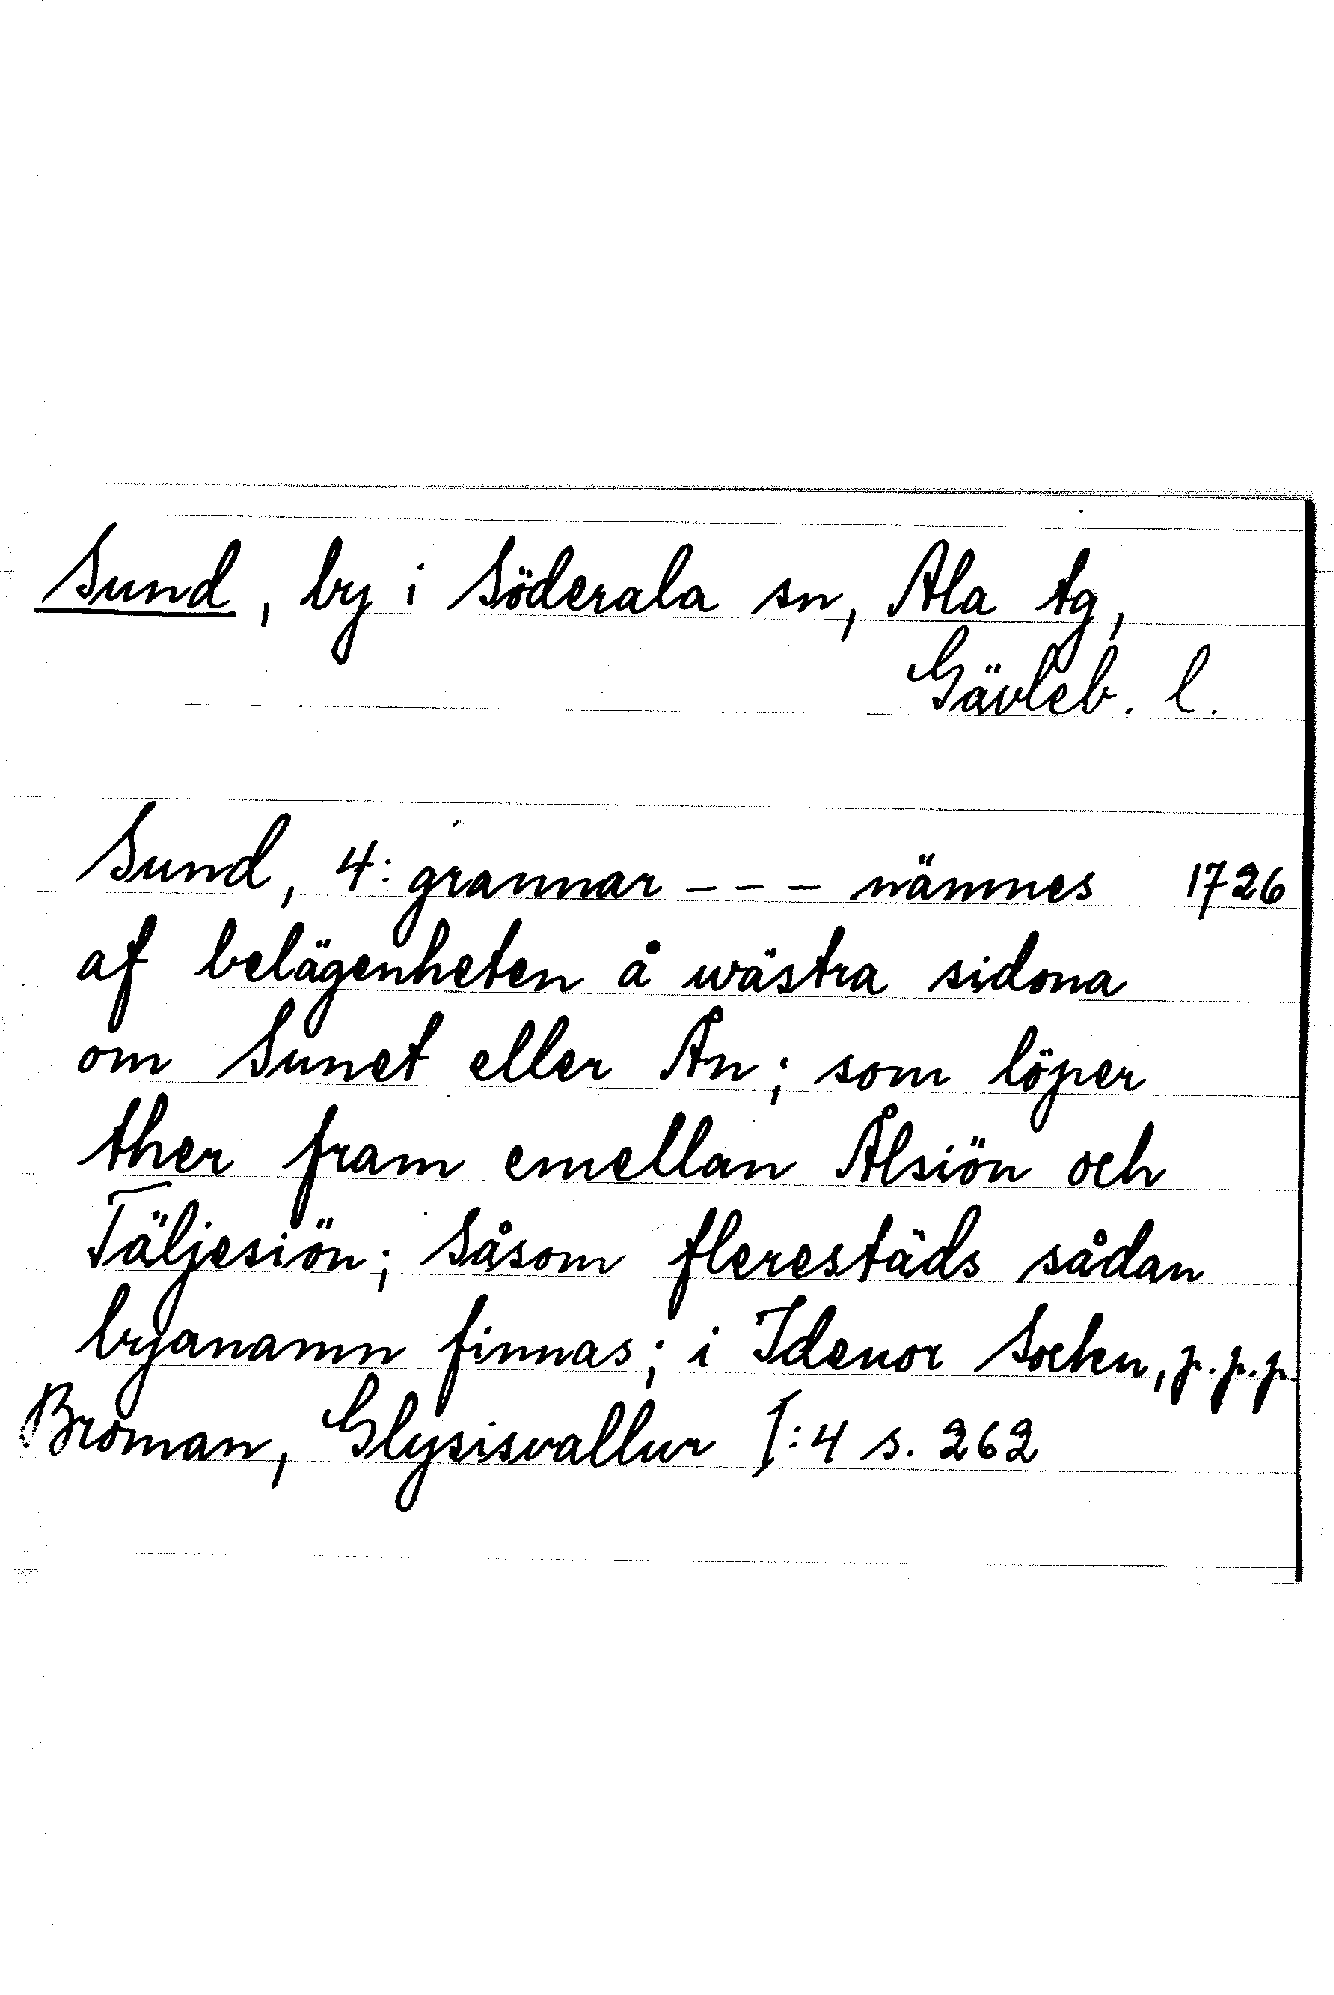 Sund, by i Söderala sn, Ala tg,
Gävleb. l.
Sund, 4: grannar --- nämnes 1726
af belägenheten å wästra sidona
om Sunet eller Ån; som löper
ther fram emellan Ålsiön och
Täljesiön; Såsom flerestäds sådan
byanamn finnas; i Idenor Sochn, p.p.p
Broman, Glysisvallur I:4 s. 262